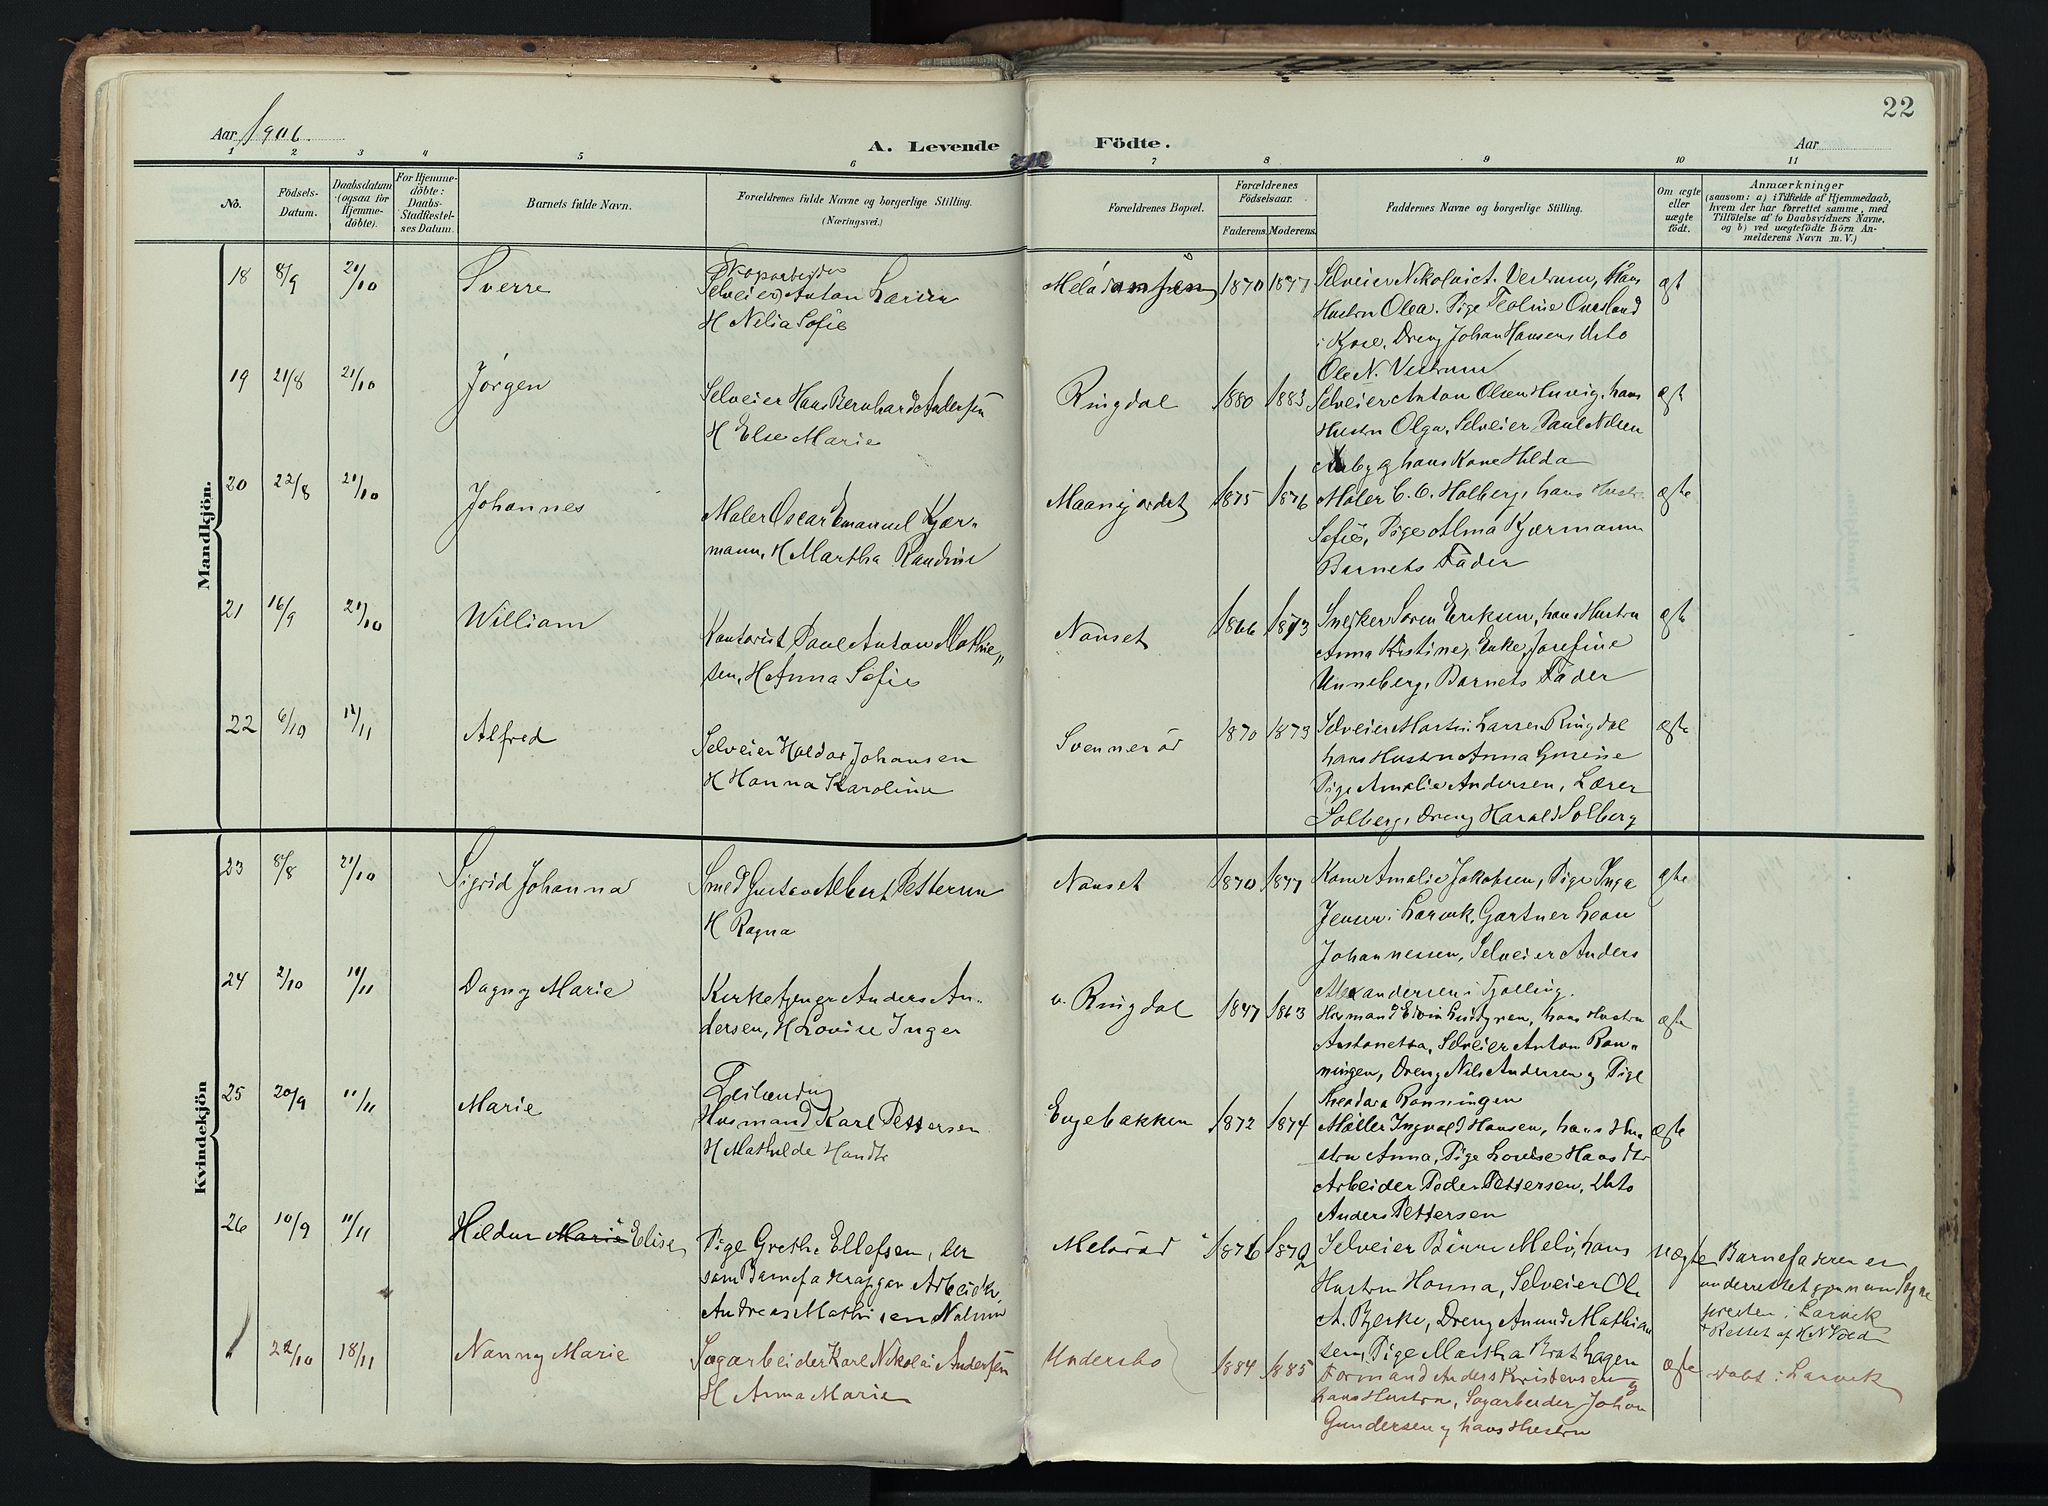 22
Aar 1906.
A. Levende Födte.
Aar
1 2 3 4 5 6 7 8 9 10 11
No.
Födsels-
Datum.
Daabsdatum
(ogsaa for
Hjemme-
döbte).
For Hjemme-
döbte:
Daabs-
Stadfæstel-
ses Datum.
Barnets fulde Navn.
Forældrenes fulde Navne og borgerlige Stilling.
(Næringsvei.)
Forældrenes Bopæl.
Forældrenes
Födselsaar.
Faderens. Moderens.
Faddernes Navne og borgerlige Stilling.
Om ægte
eller
uægte
födt.
Anmærkninger
(saasom: a) i Tilfælde af Hjemmedaab,
hvem der har forrettet samme, med
Tilföielse af to Daabsvidners Navne.
og b) ved uægtefödte Börn An-
melderens Navn m. V.)
Mandkjön.
18 8/9 21/10 Sverre
Selveier Anton Larsen
H Nilia Sofie
1870 1877
Selveier Nikolai A. Vestrum, Hans
Hustru Olea. Pige Teoline Overland
i Kjose, Dreng Johan Hansen, Ditto
Ole N. Vestrum
ægt
19 21/8 21/10 Jörgen
Selveier Hans Bernhard Andersen
H Else Marie
Ringdal
1880 1883
Selveier Anton Olsen Huvig, hans
Hustru Olga, Selveier Paul Nilsen
Aaby og hans Kone Hilda
ægt
20 22/8 21/10 Johannes
Maler Oscar Emanuel Kjær-
mann, H Martha Randine
1875 1876
Maler C. C. Holberg, hans Hustru
Sofie, Pige Alma Kjærmann
Barnets Fader
ægte
21 16/9 21/10 William
Kontorist Paul Anton Mathie-
sen, H Anna Sofie
Nanset
1866 1873
Snedker Sören Eriksen, hans Hustru
Anna Kristine, Enke Josefine
Unneberg, Barnets Fader
ægte
22 6/10 11/11 Alfred
Selveier Haldor Johansen
H Hanna Karoline
Svenneröd
1870 1873
Selveier Martin Larsen Ringdal
hans Hustru Anna
Pige Amalie Andersen, Lærer
Solberg, Dreng Harald Solberg
ægte
Kvindekjön
23 8/8 21/10 Sigrid Johanna
Smed Gustav Albert Pettersen
H Ragna
Nanset
1870 1877
Kone Amalie Jakobsen, Pige Inga
Jensen i Larvik, Gartner Leon
Johannessen, Selveier Anders
Alexandersen i Tjölling.
ægte
24 2/10 11/11 Dagny Marie
Kirketjener Anders An-
dersen, H Lovise Inger
v. Ringdal
1847 1863
Husmand Edvin Lindgren, hans Hustru
Antonetta, Selveier Anton Rön-
ningen, Dreng Nils Andersen og Pige
Theodora Rönningen
ægte
25 20/9 11/11 Marie
Leilænding
Husmand Karl Pettersen
H Mathilde Hansdtr
Engebakken
1872 1874
Möller Ingvald Hansen, hans Hu-
stru Anna, Pige Lovise Hansdtr
Arbeider Peder Pettersen, Ditto
Anders Pettersen
ægte
26 10/9 11/11 Hildur Marie Elise
Pige Grethe Ellefsen, der
som Barnefader opgav Arbeider
Andreas Mathisen Nalum
Melöröd
1876 1870
Selveier Börre Melö, hans
Hustru Hanna, Selveier Ole
A. Bjerke, Dreng Amund Mathian
sen, Pige Martha Brathagen
uægte
Barnefaderen er
underrettet gjennem Sogne
presten i Larvik
22/10 18/11 Nanny Marie
Sagarbeider Karl Nikolai Andersen
H Anna Marie
Undersbo
1884 1885
Formand Anders Kristensen og
hans Hustru, Sagarbeider Johan
Gundersen og hans Hustru
ægte
Döbt i Larvik